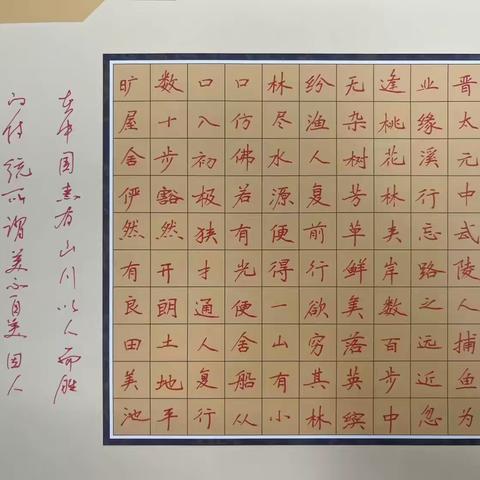 晋太元中武陵人捕鱼为
业缘溪行忘路之远近忽
逢桃花林夹岸数百步中
无杂树芳草鲜美落英缤
纷渔人复前行欲穷其林
林尽水源便得一山有小
口仿佛若有光便舍船从
口入初极狭才通人复行
数十步豁然开朗土地平
旷屋舍俨然有良田美池
在中国素有山川以人而胜
的传统所谓美不自美因人